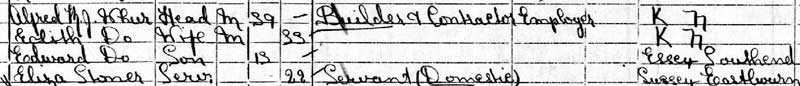 Alfred Head M 39 - Builder & Contractor Employer K
Edith Do Wife M 33 K
Edward Do Son 13 Essex Southend
Eliza Stoner Serv 22 Servant (Domestic) Sussex Eastbourn